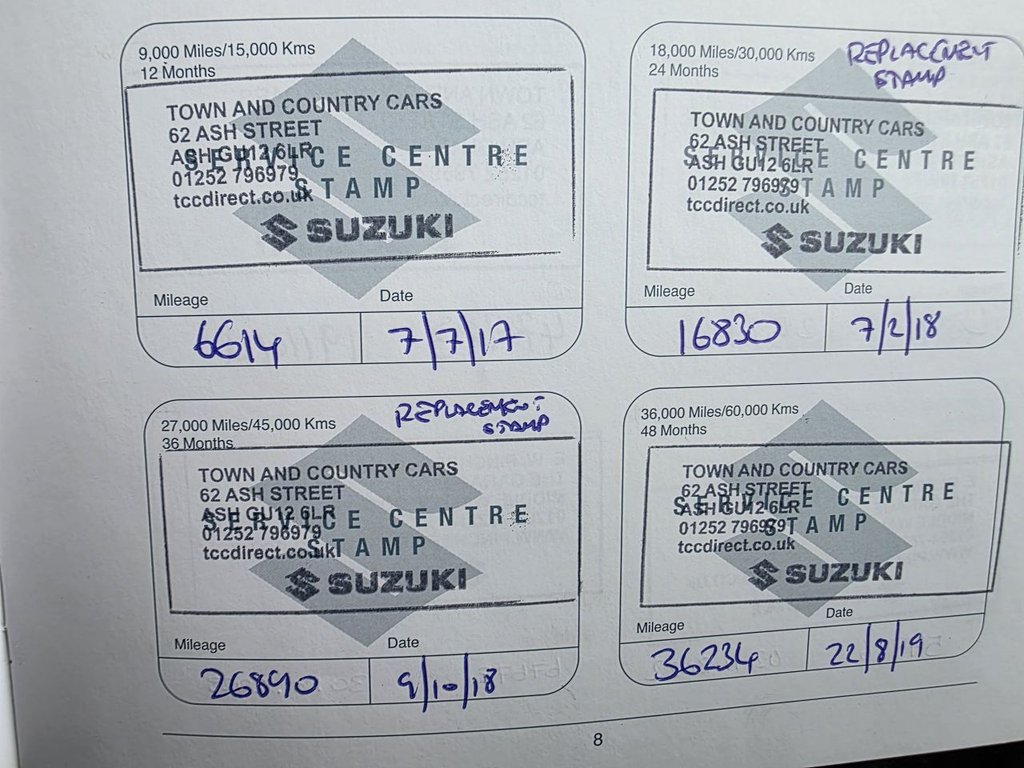 9,000 Miles/15,000 Kms
12 Months
TOWN AND COUNTRY CARS
62 ASH STREET
ASH GU12 6LR
SERVICE CENTRE
01252 796979
STAMP
tccdirect.co.uk
SUZUKI
Mileage Date
6614 7/7/17
18,000 Miles/30,000 Kms
24 Months
REPLACEMENT
STAMP
TOWN AND COUNTRY CARS
62 ASH STREET
ASH GU12 6LR
SERVICE CENTRE
01252 796979
STAMP
tccdirect.co.uk
SUZUKI
Mileage Date
16830 7/2/18
27,000 Miles/45,000 Kms
36 Months
REPLACEMENT
STAMP
TOWN AND COUNTRY CARS
62 ASH STREET
ASH GU12 6LR
SERVICE CENTRE
01252 796979
STAMP
tccdirect.co.uk
SUZUKI
Mileage Date
26890 9/10/18
36,000 Miles/60,000 Kms
48 Months
TOWN AND COUNTRY CARS
62 ASH STREET
ASH GU12 6LR
SERVICE CENTRE
01252 796979
STAMP
tccdirect.co.uk
SUZUKI
Mileage Date
36234 22/8/19
8